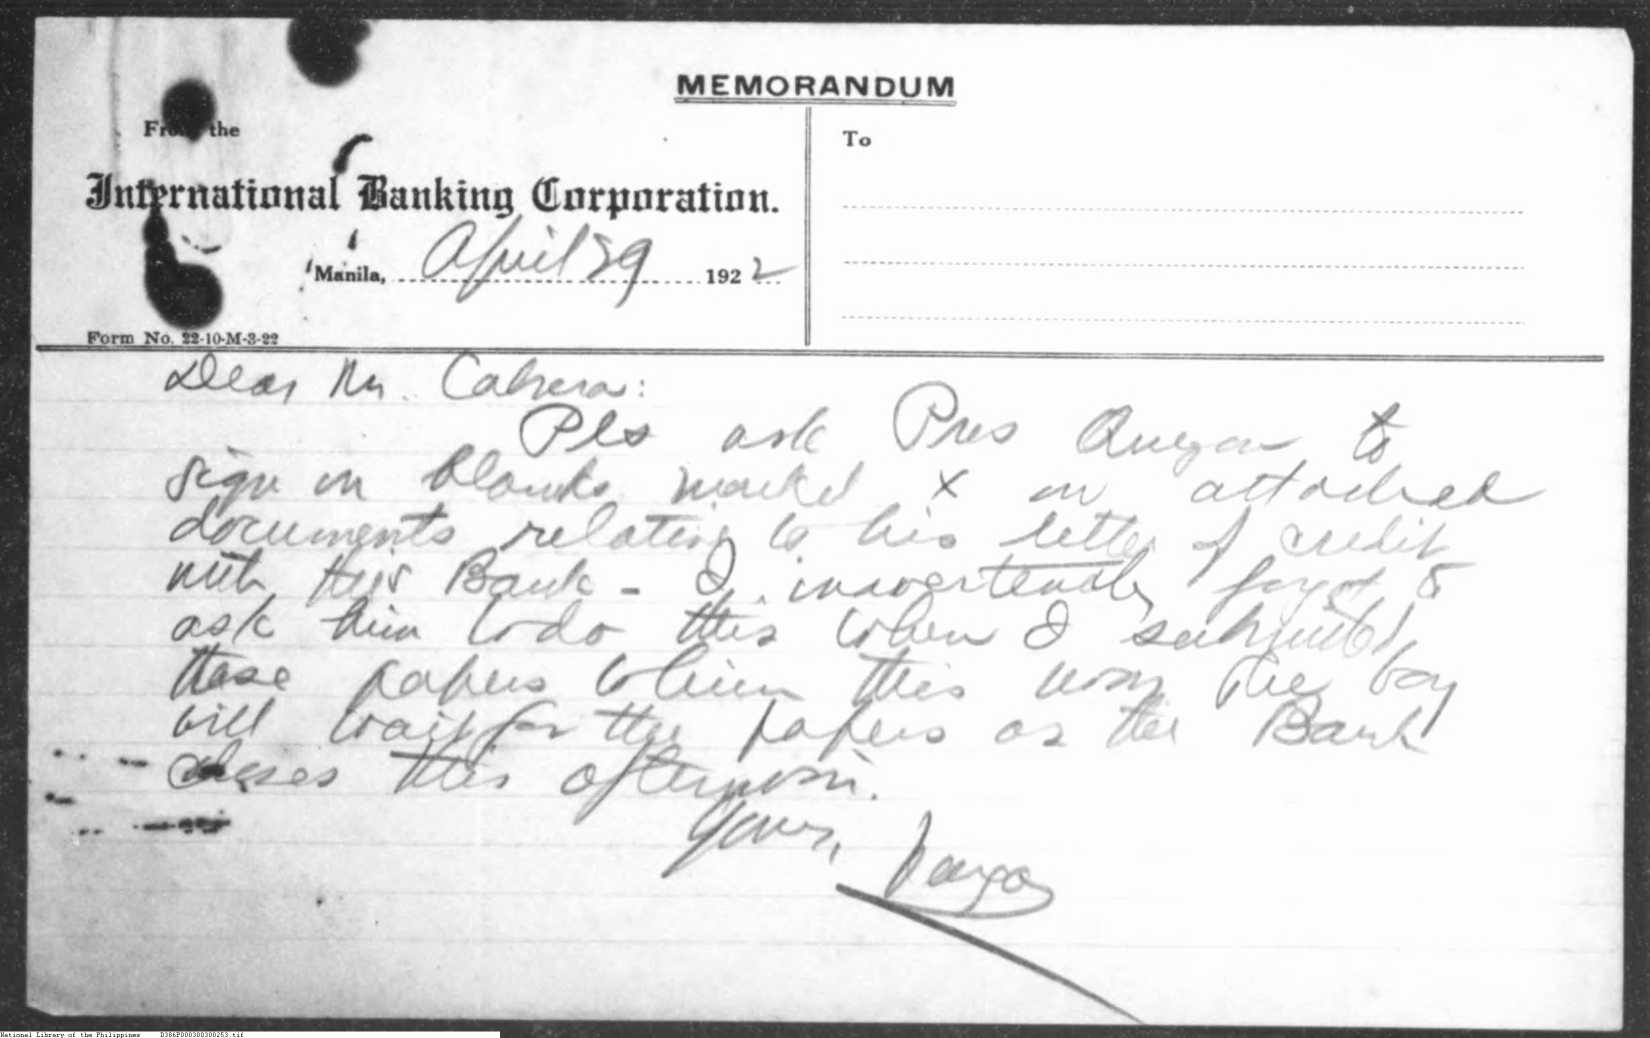 MEMORANDUM
From the
International Banking Corporation.
Manila, April 29 1922
Form No. 22-10-M-3-22
To
Dear Mr. Cabrera:
Pls ask Pres Quezon to
sign in blanks marked x on attached
documents relating to his letter of credit
with this Bank - I inavertently forgot to
ask him to do this when I submitted
these papers to him this morn The boy
will wait for the papers as the Bank
closes this afternoon.
Yours,
Vargas
National Library of the Philippines D386P000300300253.tif